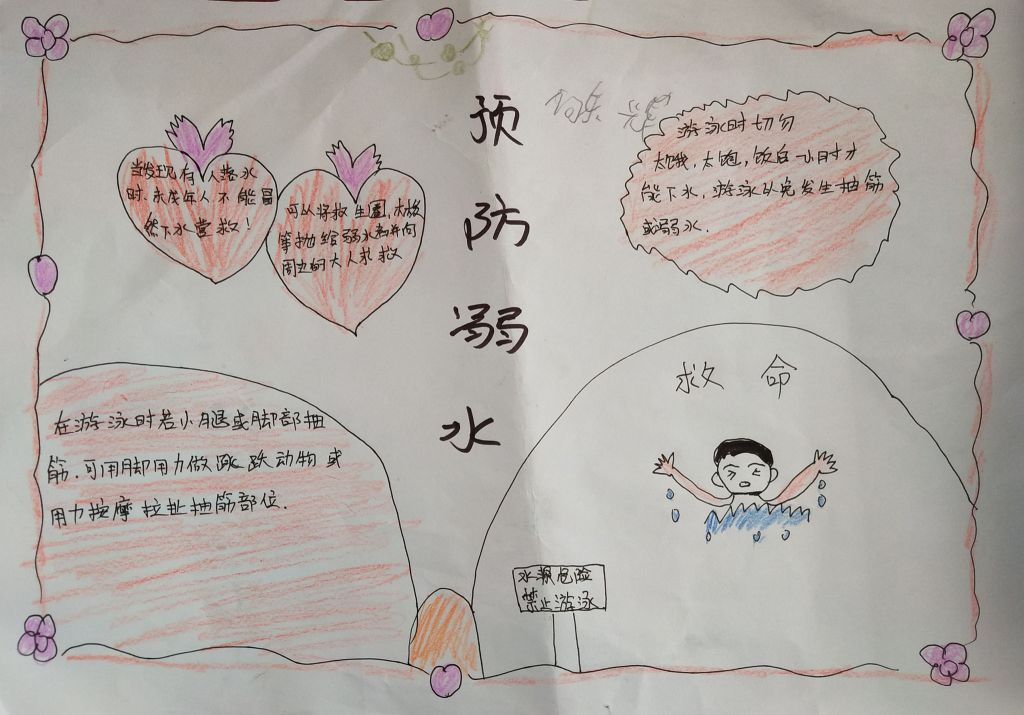 预
防
弱
水
当发现有人落水
时.未成年人不能冒
然下水营救!
可以将救生圈,木板
等抛给弱水者并向
周边的大人求救
游泳时切勿
太饿,太饱,饮 一小时才
能下水,游泳以免发生抽筋
或弱水.
在游泳时若小腿或脚部抽
筋.可用脚用力做跳跃动物或
用力按摩拉扯抽筋部位.
救命
水 危险
禁止游泳